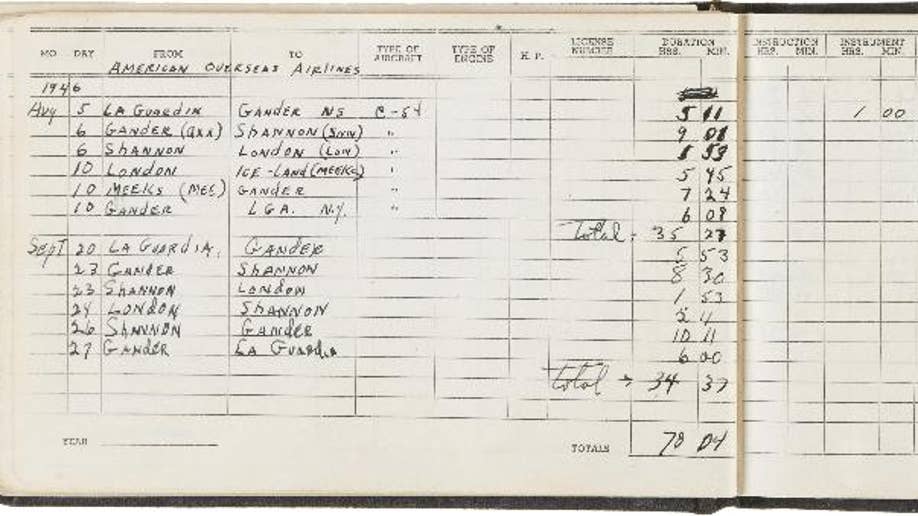 MO. DAY FROM TO TYPE OF AIRCRAFT TYPE OF ENGINE H. P. LICENSE NUMBER DURATION HRS. MIN. INSTRUCTION HRS. MIN. INSTRUMENT HRS. MIN.
AMERICAN OVERSEAS AIRLINES
1946
Aug 5 LA GUARDIA GANDER NS C-54 5 11 1 00
6 GANDER (QXX) SHANNON (SNN) " 9 01
6 SHANNON LONDON (LON) " 1 53
10 LONDON ICE-LAND (MEEKS) " 5 45
10 MEEKS (MEE) GANDER " 7 24
10 GANDER LGA. N.Y. " 6 08
Total - 35 27
Sept 20 LA GUARDIA, GANDER 5 53
23 GANDER SHANNON 8 30
23 SHANNON LONDON 1 53
24 LONDON SHANNON 2 11
26 SHANNON GANDER 10 11
27 GANDER LA GUARDIA 6 00
total → 34 37
YEAR TOTALS 70 04